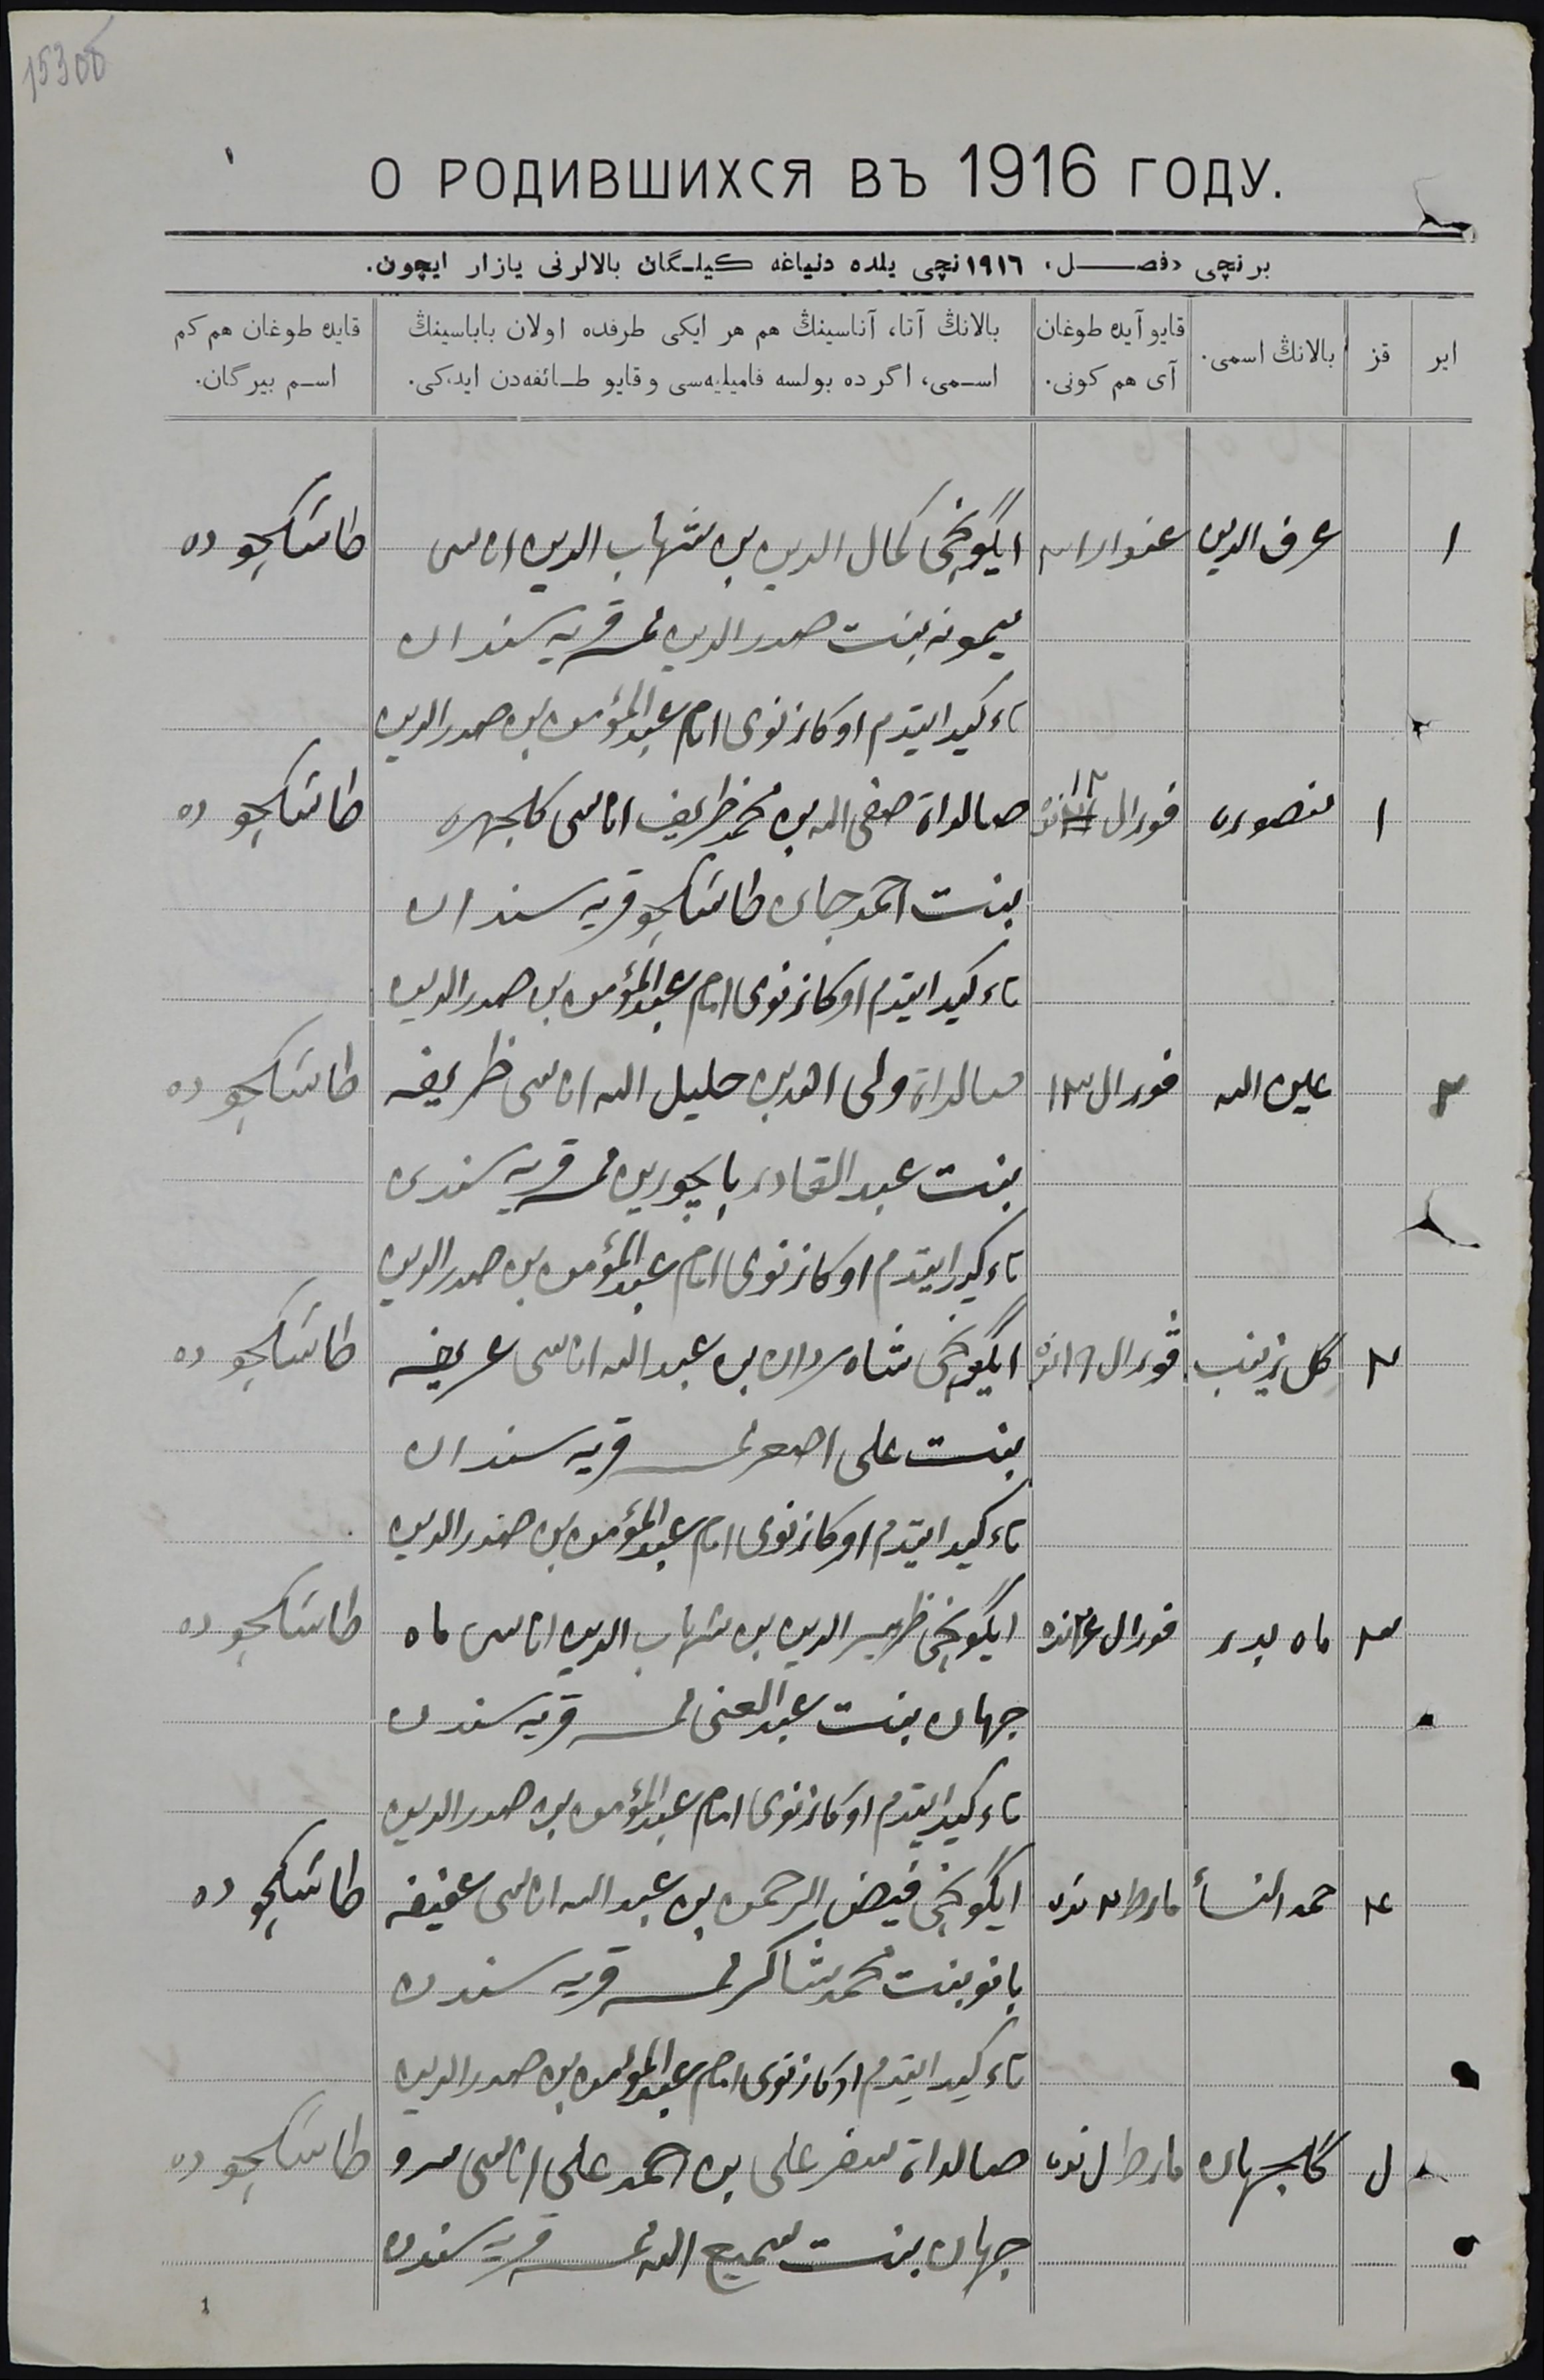 153об
О РОДИВШИХСЯ ВЪ 1916 ГОДУ.
برنچی «فصل» ١٩١٦ نچی یلده دنیاغه کیلگان بالالرنی یازار ایچون.
ایر
قز
بالانڭ اسمی.
قایو آیده طوغان آی هم کونی.
بالانڭ آتا، آناسینڭ هم هر ایکی طرفده اولان باباسینڭ اسمی، اگر ده بولسه فامیلیه‌سی و قایو طائفه‌دن ایدکی.
قایده طوغان هم کم اسم بیرگان.
١ عرف الدین ایگونچی کمال الدین بن شهاب الدین اناسی طاشکچو ده
میمونه بنت صدرالدین قریه سندان
تاءکید ایتدم اوکازنوی امام عبدالمؤمن بن صدرالدین
١ منصوره فورال ١٢ صالداة صفی الله بن محمد ظریف اناسی کلچهره طاشکچو ده
بنت احمدجان طاشکچو قریه سندان
تاءکید ایتدم اوکازنوی امام عبدالمؤمن بن صدرالدین
٢ عین الله فورال ١٣ صالداة ولی الله بن خلیل الله اناسی ظریفه طاشکچو ده
بنت عبد القادر قریه سندن
تاءکید ایتدم اوکازنوی امام عبدالمؤمن بن صدرالدین
٢ گل زینب فورال ١٩ نده ایگونچی شاه مردان بن عبد الله اناسی عریفه طاشکچو ده
بنت علی اصغر قریه سندان
تاءکید ایتدم اوکازنوی امام عبدالمؤمن بن صدرالدین
٣ ماه بدر فورال ٢٤ نده ایگونچی ظهیر الدین بن شهاب الدین اناسی ماه طاشکچو ده
جهان بنت عبد الغنی قریه سندن
تاءکید ایتدم اوکازنوی امام عبدالمؤمن بن صدرالدین
٤ حمد النسأ مارط ٢ نده ایگونچی فیض الرحمن بن عبد الله اناسی عفیفه طاشکچو ده
بانو بنت محمد شاکر قریه سندن
تاءکید ایتدم اوکازنوی امام عبدالمؤمن بن صدرالدین
گلجهان مارط نده صالداة سفر علی بن احمد علی اناسی سرو طاشکچو ده
جهان بنت سمیع الله قریه سندن
1